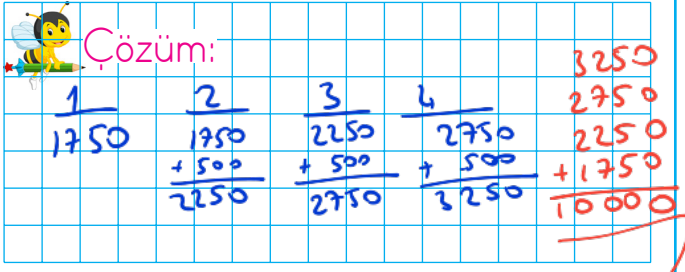 Çözüm:
1
1750
2
1750
+ 500
2250
3
2250
+ 500
2750
4
2750
+ 500
3250
3250
2750
2250
+1750
10000